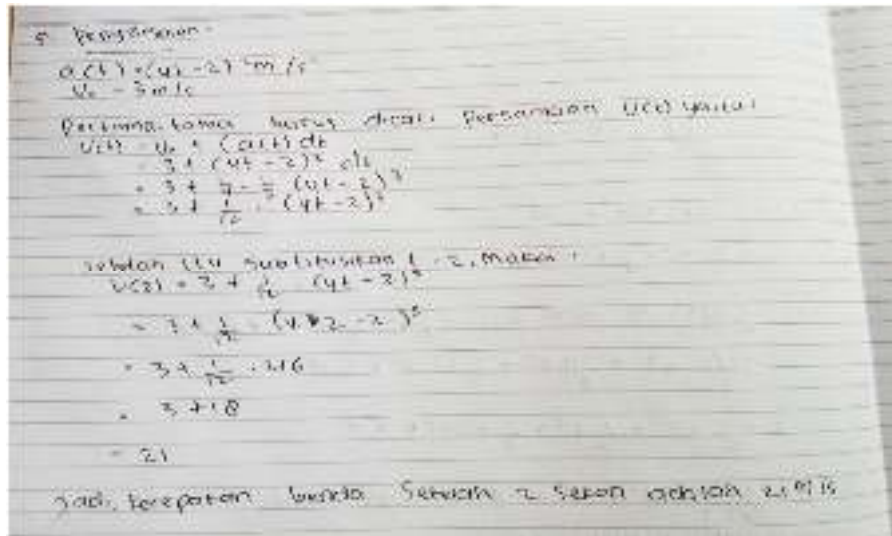 5 Penyelesaian.
a(t) = (4t - 2)² m/s
v₀ = 3 m/s
Pertama-tama harus dicari Persamaan v(t) yaitu:
v(t) = v₀ + ∫ a(t) dt
= 3 + (4t - 2)² dt
= 3 + 1/4 · 1/3 (4t - 2)³
= 3 + 1/12 · (4t - 2)³
setelah itu substitusikan t = 2, maka:
v(2) = 3 + 1/12 (4t - 2)³
= 3 + 1/12 · (4 * 2 - 2)³
= 3 + 1/12 · 216
= 3 + 18
= 21
Jadi, kecepatan benda Setelah 2 sekon adalah 21 m/s